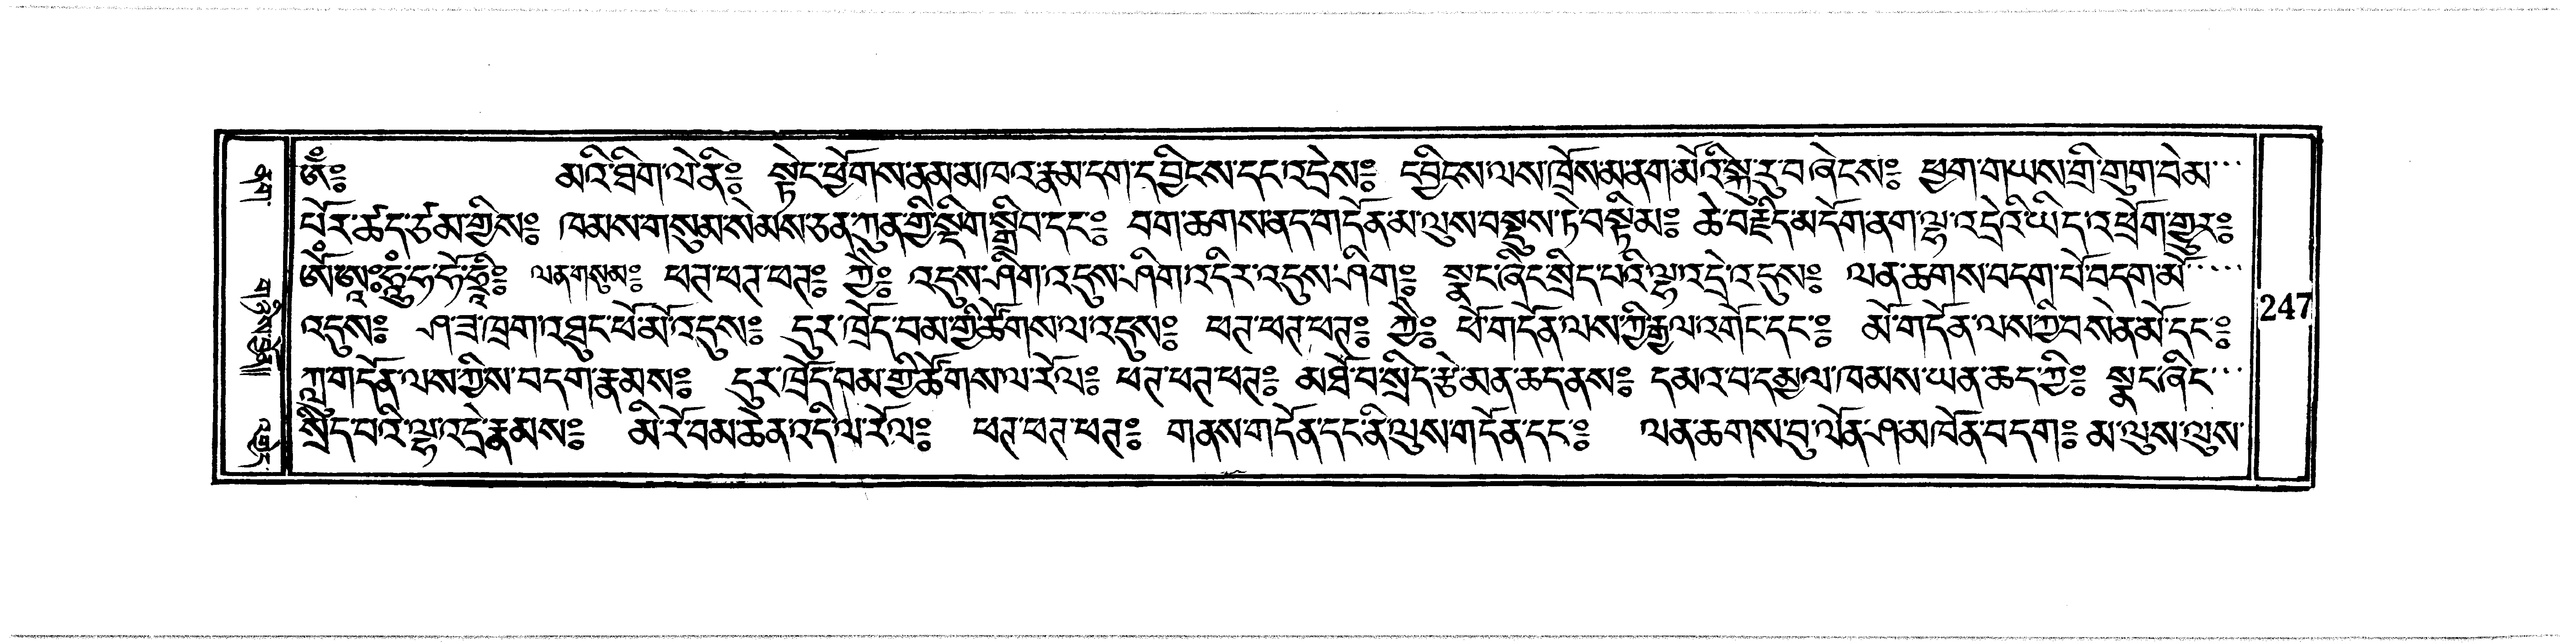 ཨོཾ༔ མའི་ཐིག་ལེ་ནི༔ སྟེང་ཕྱོགས་ནམ་མཁའ་རྣམ་དག་དབྱིངས་དང་འདྲེས༔ ང་བྱིངས་ལས་ཁྲོས་མ་ནག་མོའི་སྐུ་རུ་བཞེངས༔ ཕྱག་གཡས་གྲི་གུག་བེམ…
པོར་ཚད་ཙམ་གྱིས༔ ཁམས་གསུམ་སེམས་ཅན་ཀུན་གྱི་སྡིག་སྒྲིབ་དང༔ བག་ཆགས་ནད་གདོན་མ་ལུས་བསྡུས་ཏེ་བསྟིམ༔ ཆེ་བརྗིད་མདོག་ནག་ལྷ་འདྲེའི་ཡིད་འཕྲོག་གྱུར༔
ཨོཾ་ཨཱཿཧཱུྃ་ཧ་ཧོ་ཧྲཱིཿ ལན་གསུམ༔ ཕཊ་ཕཊ་ཕཊ༔ ཀྱེ༔ འདུས་ཤིག་འདུས་ཤིག་འདིར་འདུས་ཤིག༔ སྣང་ཞིང་སྲིད་པའི་ལྷ་འདྲེ་འདུས༔ ལན་ཆགས་བདག་པོ་བདག་མོ…
འདུས༔ ཤ་ཟ་ཁྲག་འཐུང་ཕོ་མོ་འདུས༔ དུར་ཁྲོད་བམ་གྱི་ཚོགས་ལ་འདུས༔ ཕཊ་ཕཊ་ཕཊ༔ ཀྱེ༔ ཕོ་གདོན་ལས་ཀྱི་རྒྱལ་འགོང་དང༔ མོ་གདོན་ལས་ཀྱི་བསེན་མོ་དང༔
ཀླུ་གདོན་ལས་ཀྱིས་བདག་རྣམས༔ དུར་ཁྲོད་བམ་གྱི་ཚོགས་ལ་རོལ༔ ཕཊ་ཕཊ་ཕཊ༔ མཐོ་བ་སྲིད་རྩེ་མན་ཆད་ནས༔ དམའ་བ་དམྱལ་ཁམས་ཡན་ཆད་ཀྱི༔ སྣང་ཞིང…
སྲིད་པའི་ལྷ་འདྲེ་རྣམས༔ མི་རོ་བམ་ཆེན་འདི་ལ་རོལ༔ ཕཊ་ཕཊ་ཕཊ༔ གནས་གདོན་དང་ནི་ལུས་གདོན་དང༔ ལན་ཆགས་བུ་ལོན་ཤ་མཁོན་བདག༔ མ་ལུས་ལུས་
247